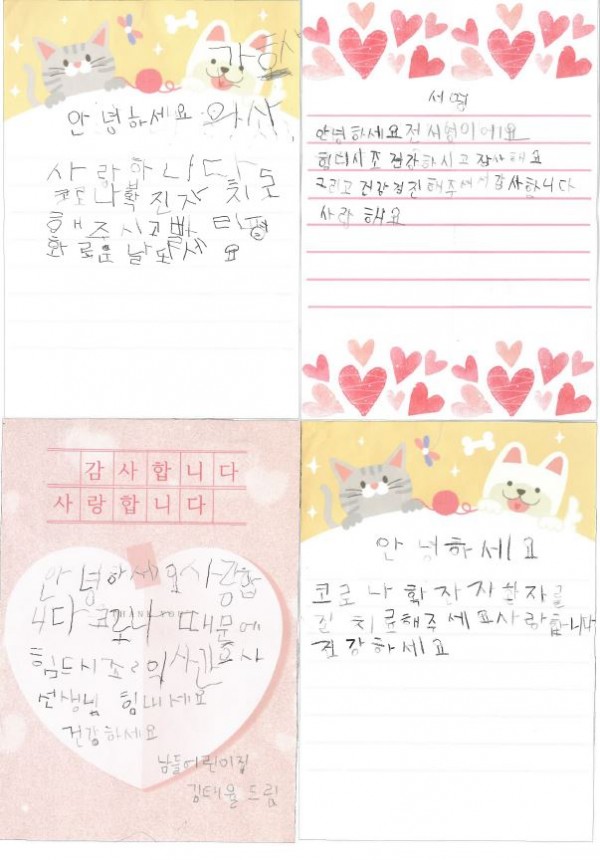 안녕하세요 의사,
간호사
사랑하니다
코로나확진자 치료
해주시고빨리평
화로운날오세요
서영
안녕하세요전 서영이에요
힘드시조 건강하시고 감사해요
그리고 건강검진해주셔서감사합니다
사랑 해요
감사합니다
사랑합니다
안녕하세요사랑합
니다 코로나 때문에
힘드시조 의사간호사
선생님 힘내세요
건강하세요
남들어린이집
김태율 드림
안녕하세요
코로나 확진자를
잘 치료해주세요사랑합니다
건강하세요